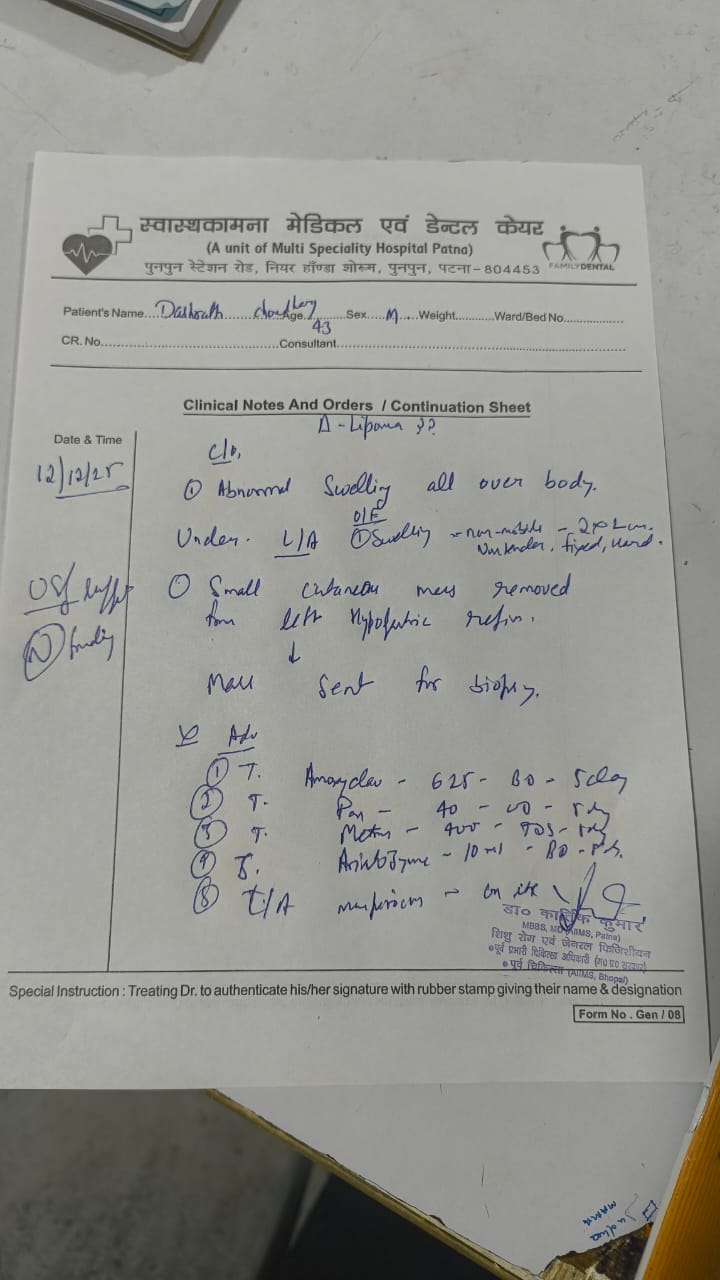 स्वास्थकामना मेडिकल एवं डेन्टल केयर
(A unit of Multi Speciality Hospital Patna)
पुनपुन स्टेशन रोड, नियर हॉण्डा शोरूम, पुनपुन, पटना-804453
FAMILYDENTAL
Patient's Name....Dashrath Choudhary Age.43 Sex....M....Weight...........Ward/Bed No...............
CR. No.............Consultant.............
Clinical Notes And Orders / Continuation Sheet
Δ - Lipoma ??
Date & Time
12/12/25
C/o,
① Abnormal Swelling all over body.
O/E
Under. L/A ① Swelling = non-mobile - 2x2cm.
Nontender, fixed, hard.
① Small cutaneous mass removed
from left Hypogastric region.
↓
Mass Sent for biopsy.
Adv
① T. Amoxyclav - 625 - BD - 5 day
② T. Pan - 40 - OD - 5 day
③ T. - 400 - TDS - 5 day
④ S. Aristozyme - 10 ml - BD -
⑤ T/A mupirocin - on
डा० कार्तिक कुमार
MBBS, MD (AIIMS, Patna)
शिशु रोग एवं जेनरल फिजिशीयन
पूर्व प्रभारी चिकित्सा अधिकारी (म० प्र० सरकार)
पूर्व चिकित्सा (AIIMS, Bhopal)
Special Instruction : Treating Dr. to authenticate his/her signature with rubber stamp giving their name & designation
Form No . Gen / 08